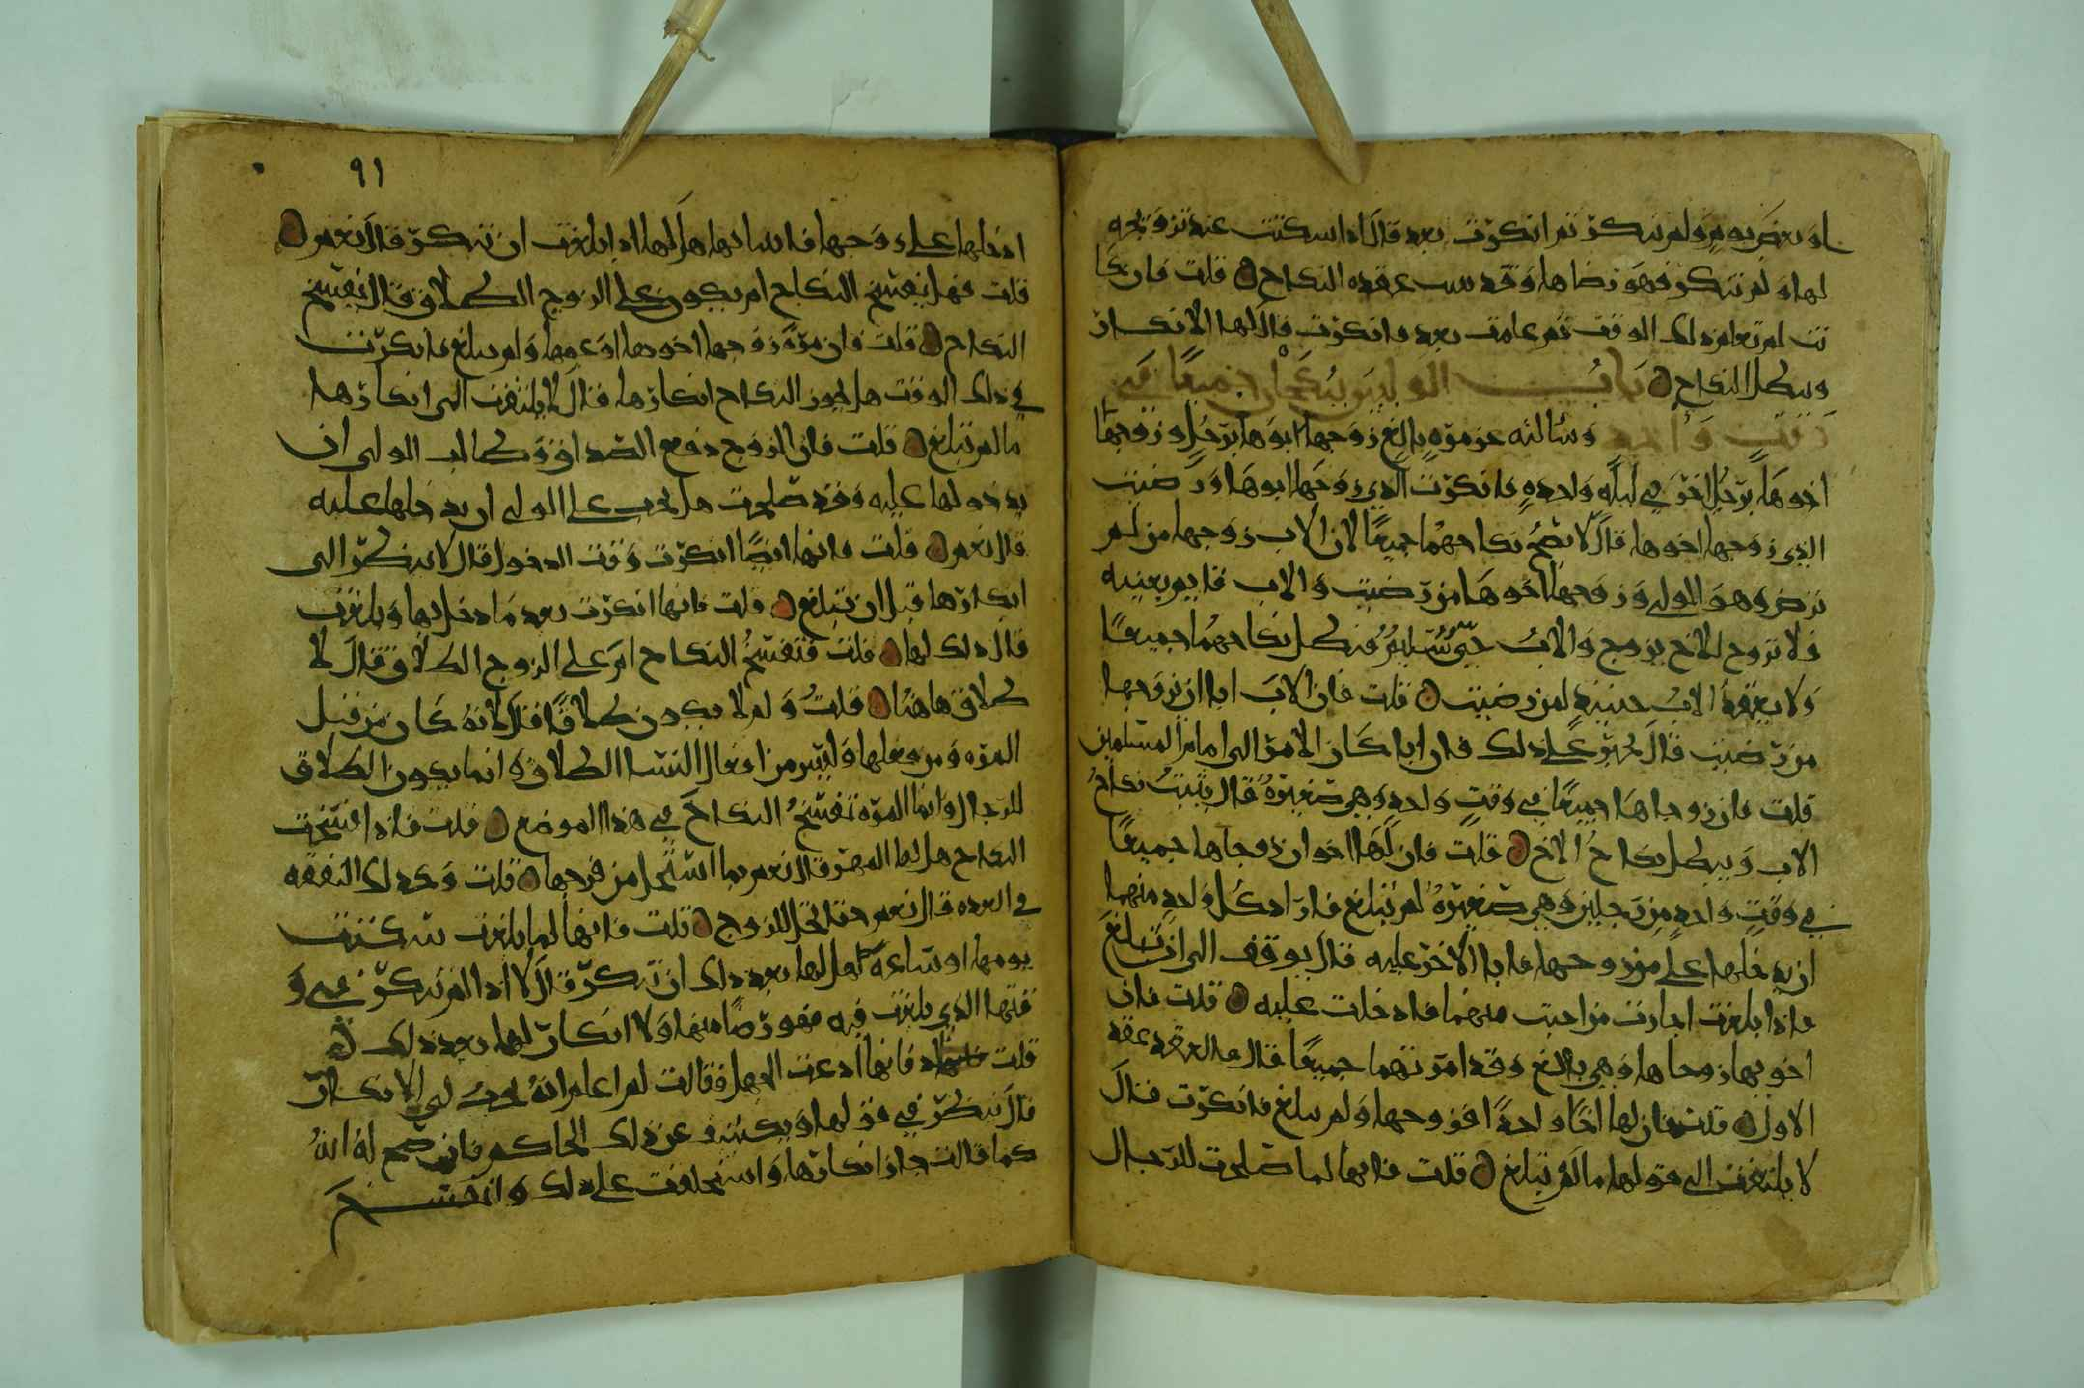 او بعض يوم ولم تنكر ثم انكرت بعد قال اذا سكتت عند تزويجه
لها ولم تنكر فهو رضاها وقد ثبت عقده النكاح قلت فان كا
نت لم تعلم ذلك الوقت ثم علمت بعد فانكرت قال لها الانكار
ويبطل النكاح باب الوليين ينكحان جميعا في
وقت واحد وسالته عن مره بالغ زوجها ابوها برجل وزوجها
اخوها برجل اخر في ليله واحده فانكرت الذي زوجها ابوها ورضيت
الذي زوجها اخوها قال لا يصح نكاحهما جميعا لان الاب زوجها من لم
ترض وهو الولي وزوجها اخوها من رضيت والاب قايم بعينه
فلا تزوج للاخ يزوج والاب حي سليم فبطل نكاحهما جميعا
ولا يعقد الاب حينيذ لمن رضيت قلت فان الاب ابا ان يزوجها
من رضيت قال يجبر على ذلك فان ابا كان الامر الى امام المسلمين
قلت فان زوجاها جميعا في وقت واحد وهي صغيره قال يثبت نكاح
الاب ويبطل نكاح الاخ قلت فان لها اخوان زوجاها جميعا
في وقت واحد من رجلين وهي صغيره لم تبلغ فاراد كل واحد منهما
ان يدخلها على من زوجها فابا الاخر عليه قال يوقف الى ان تبلغ
فاذا بلغت اجازت من احبت منهما فادخلت عليه قلت فان
اخويها زوجاها وهي بالغ وقد امرتهما جميعا قال فالعقد عقد
الاول قلت فان لها اخا واحدا فزوجها ولم تبلغ فانكرت قال
لا يلتفت الى قولها ما لم تبلغ قلت فانها لما صلحت للرجال
٩١
ادخلها على زوجها فاسابها هل لها اذا بلغت ان تنكر قال نعم
قلت فهل يفسخ النكاح ام يكون على الزوج الطلاق قال يفسخ
النكاح قلت فان مره زوجها اخوها او عمها ولم تبلغ فانكرت
في ذلك الوقت هل يجوز النكاح انكارها فقال لا يلتفت الى انكارها
ما لم تبلغ قلت فان الزوج دفع الصداق وطالب الولي ان
يدخولها عليه وقد صلحت هل يجب على الولي ان يدخلها عليه
قال نعم قلت فانها ايضا انكرت وقت الدخول قال لا ينظر الى
انكارها قبل ان تبلغ قلت فانها انكرت بعد ما دخل بها وبلغت
قال ذلك لها قلت فتفسخ النكاح ام على الزوج الطلاق فقال لا
طلاق هاهنا قلت ولم لا يكون طلاقا فقال لانه كان من قبل
المره ومن فعلها وليس من افعال النسا الطلاق وانما يكون الطلاق
للرجال وانما المره تفسخ النكاح في هذا الموضع قلت فاذا افسخت
النكاح هل لها المهر قال نعم بما استحل من فرجها قلت وكذلك النفقه
في العده قال نعم حتا تحل للزوج قلت فانها لما بلغت سكتت
يومها او ساعه هل لها بعد ذلك ان تنكر قال لا اذا لم تنكر في و
قتها الذي بلغت فيه فهو رضا منها ولا انكار لها بعد ذلك
قلت فانها ادعت الجهل فقالت لم اعلم انه يجب لي الانكار
قال ينظر في قولها ويكشف عن ذلك الحاكم فان صح له انه
كما قالت جاز انكارها واستحلفت على ذلك وانفسخ